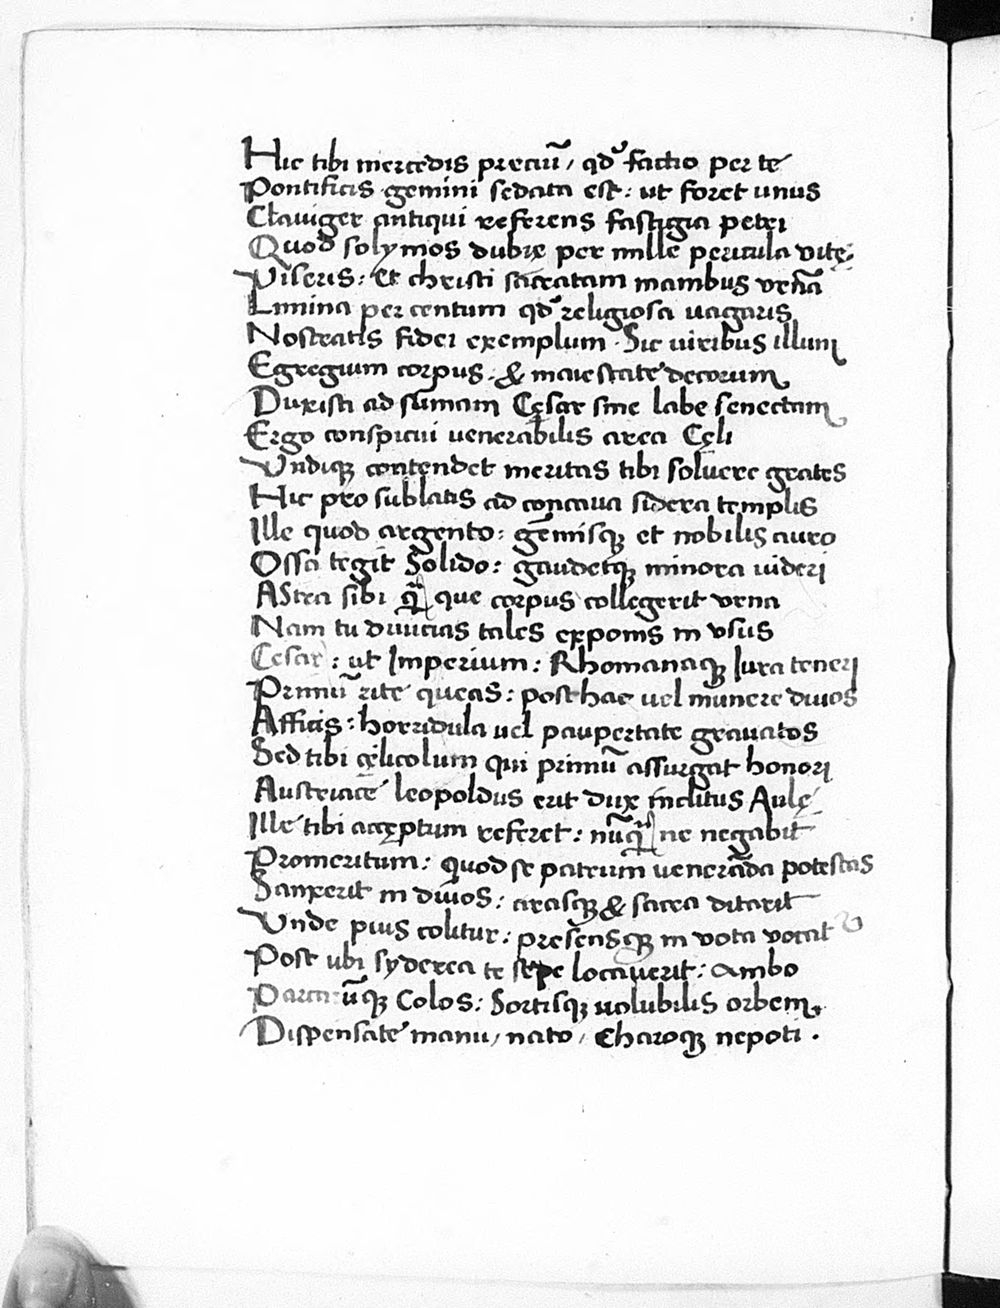 Hic tibi mercedis preciũ, qđ factio per te
Pontificis gemini sedata est: ut foret unus
Clauiger antiqui referens fastigia petri
Quod solymos dubie per mille pericula vitę:
Viseris: et christi sacratam manibus vrnã
Limina per centum qđ religiosa uagaris
Nostratis fidei exemplum. Sic uiribus illum
Egregium corpus: & maiestate decorum
Duxisti ad sũmam Cęsar sine labe senectam
Ergo conspicui uenerabilis area Cęli
Vndiqꝫ contendet meritas tibi soluere grates
Hic pro sublatis ad concaua sidera templis
Ille quod argento: gẽmisqꝫ et nobilis auro
Ossa tegit Solido: gaudetqꝫ minora uideri
Astra sibi que corpus collegerit vrna
Nam tu diuicias tales exponis in vsus
Cesar: ut Imperium: Rhomanaqꝫ Iura teneri
Primũ rite queas: post hac uel munere diuos
Afficis: horridula uel paupertate grauatos
Sed tibi cęlicolum qui primũ assurgat honori
Austriace leopoldus erit dux inclitus Aulę
Ille tibi accęptum referet: nũqꝫ ne negabit
Promeritum: quod se patrum uenerãda potestas
Sanxerit in diuos: arasqꝫ & sacra ditarit
Vnde pius colitur: presensqꝫ in vota vocat
Post ubi syderea te sępe locauerit: ambo
Parcarũqꝫ Colos: Sortisqꝫ uolubilis orbem
Dispensate manu, nato, Charoqꝫ nepoti.